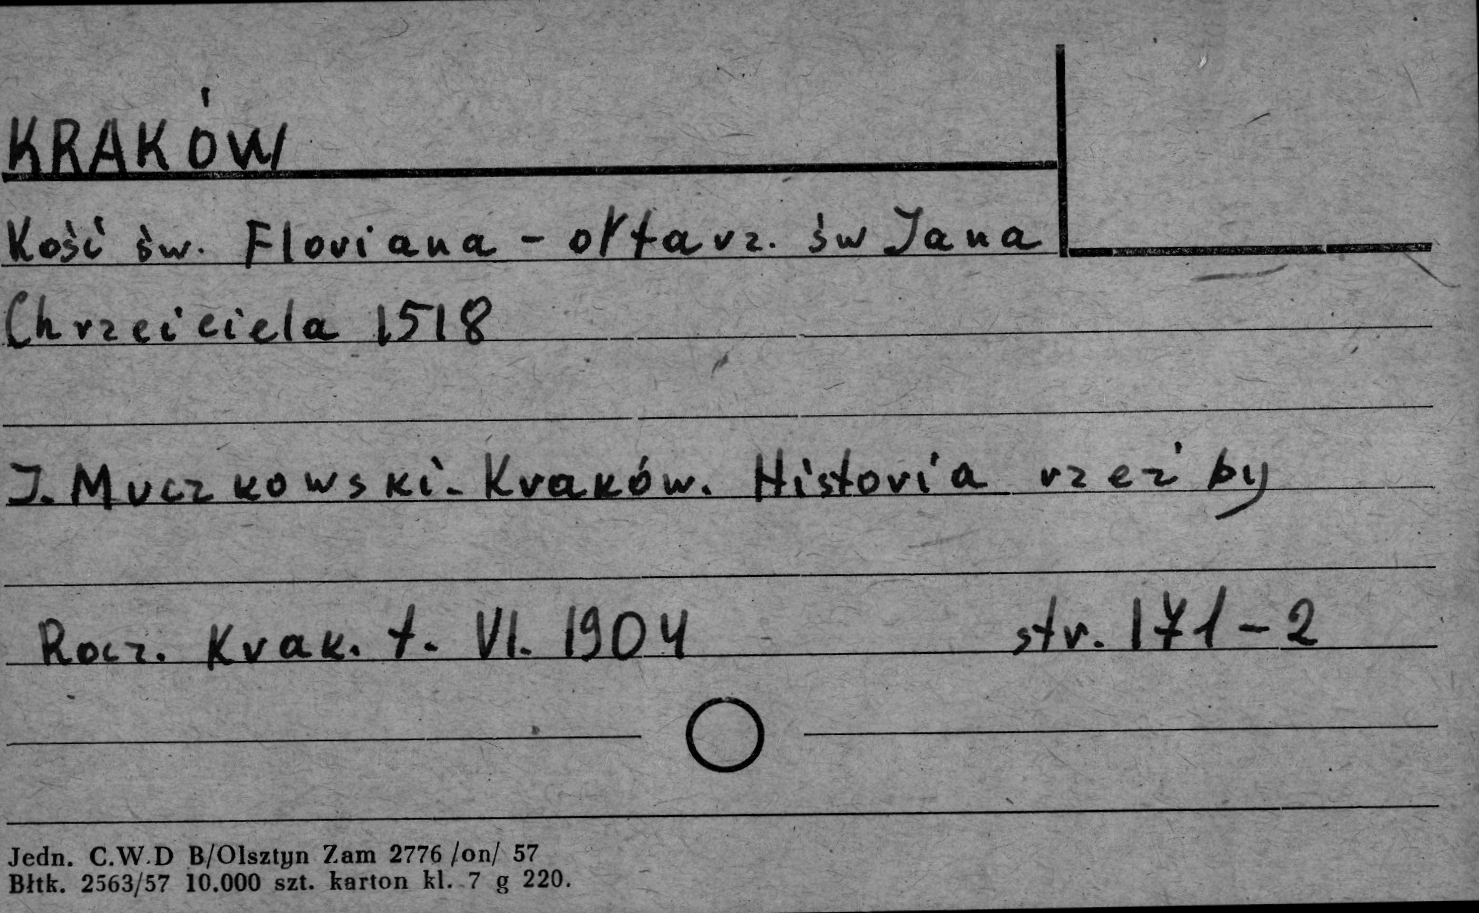 KRAKÓW
Kość św. Floriana - ołtarz. św Jana
Chrzciciela 1518
J. Muczkowski - Kraków. Historia rzeźby
Rocz. Krak. t. VI. 1904 str. 171-2
Jedn. C.W.D B/Olsztyn Zam 2776 /on/ 57
Błtk. 2563/57 10.000 szt. karton kl. 7 g 220.